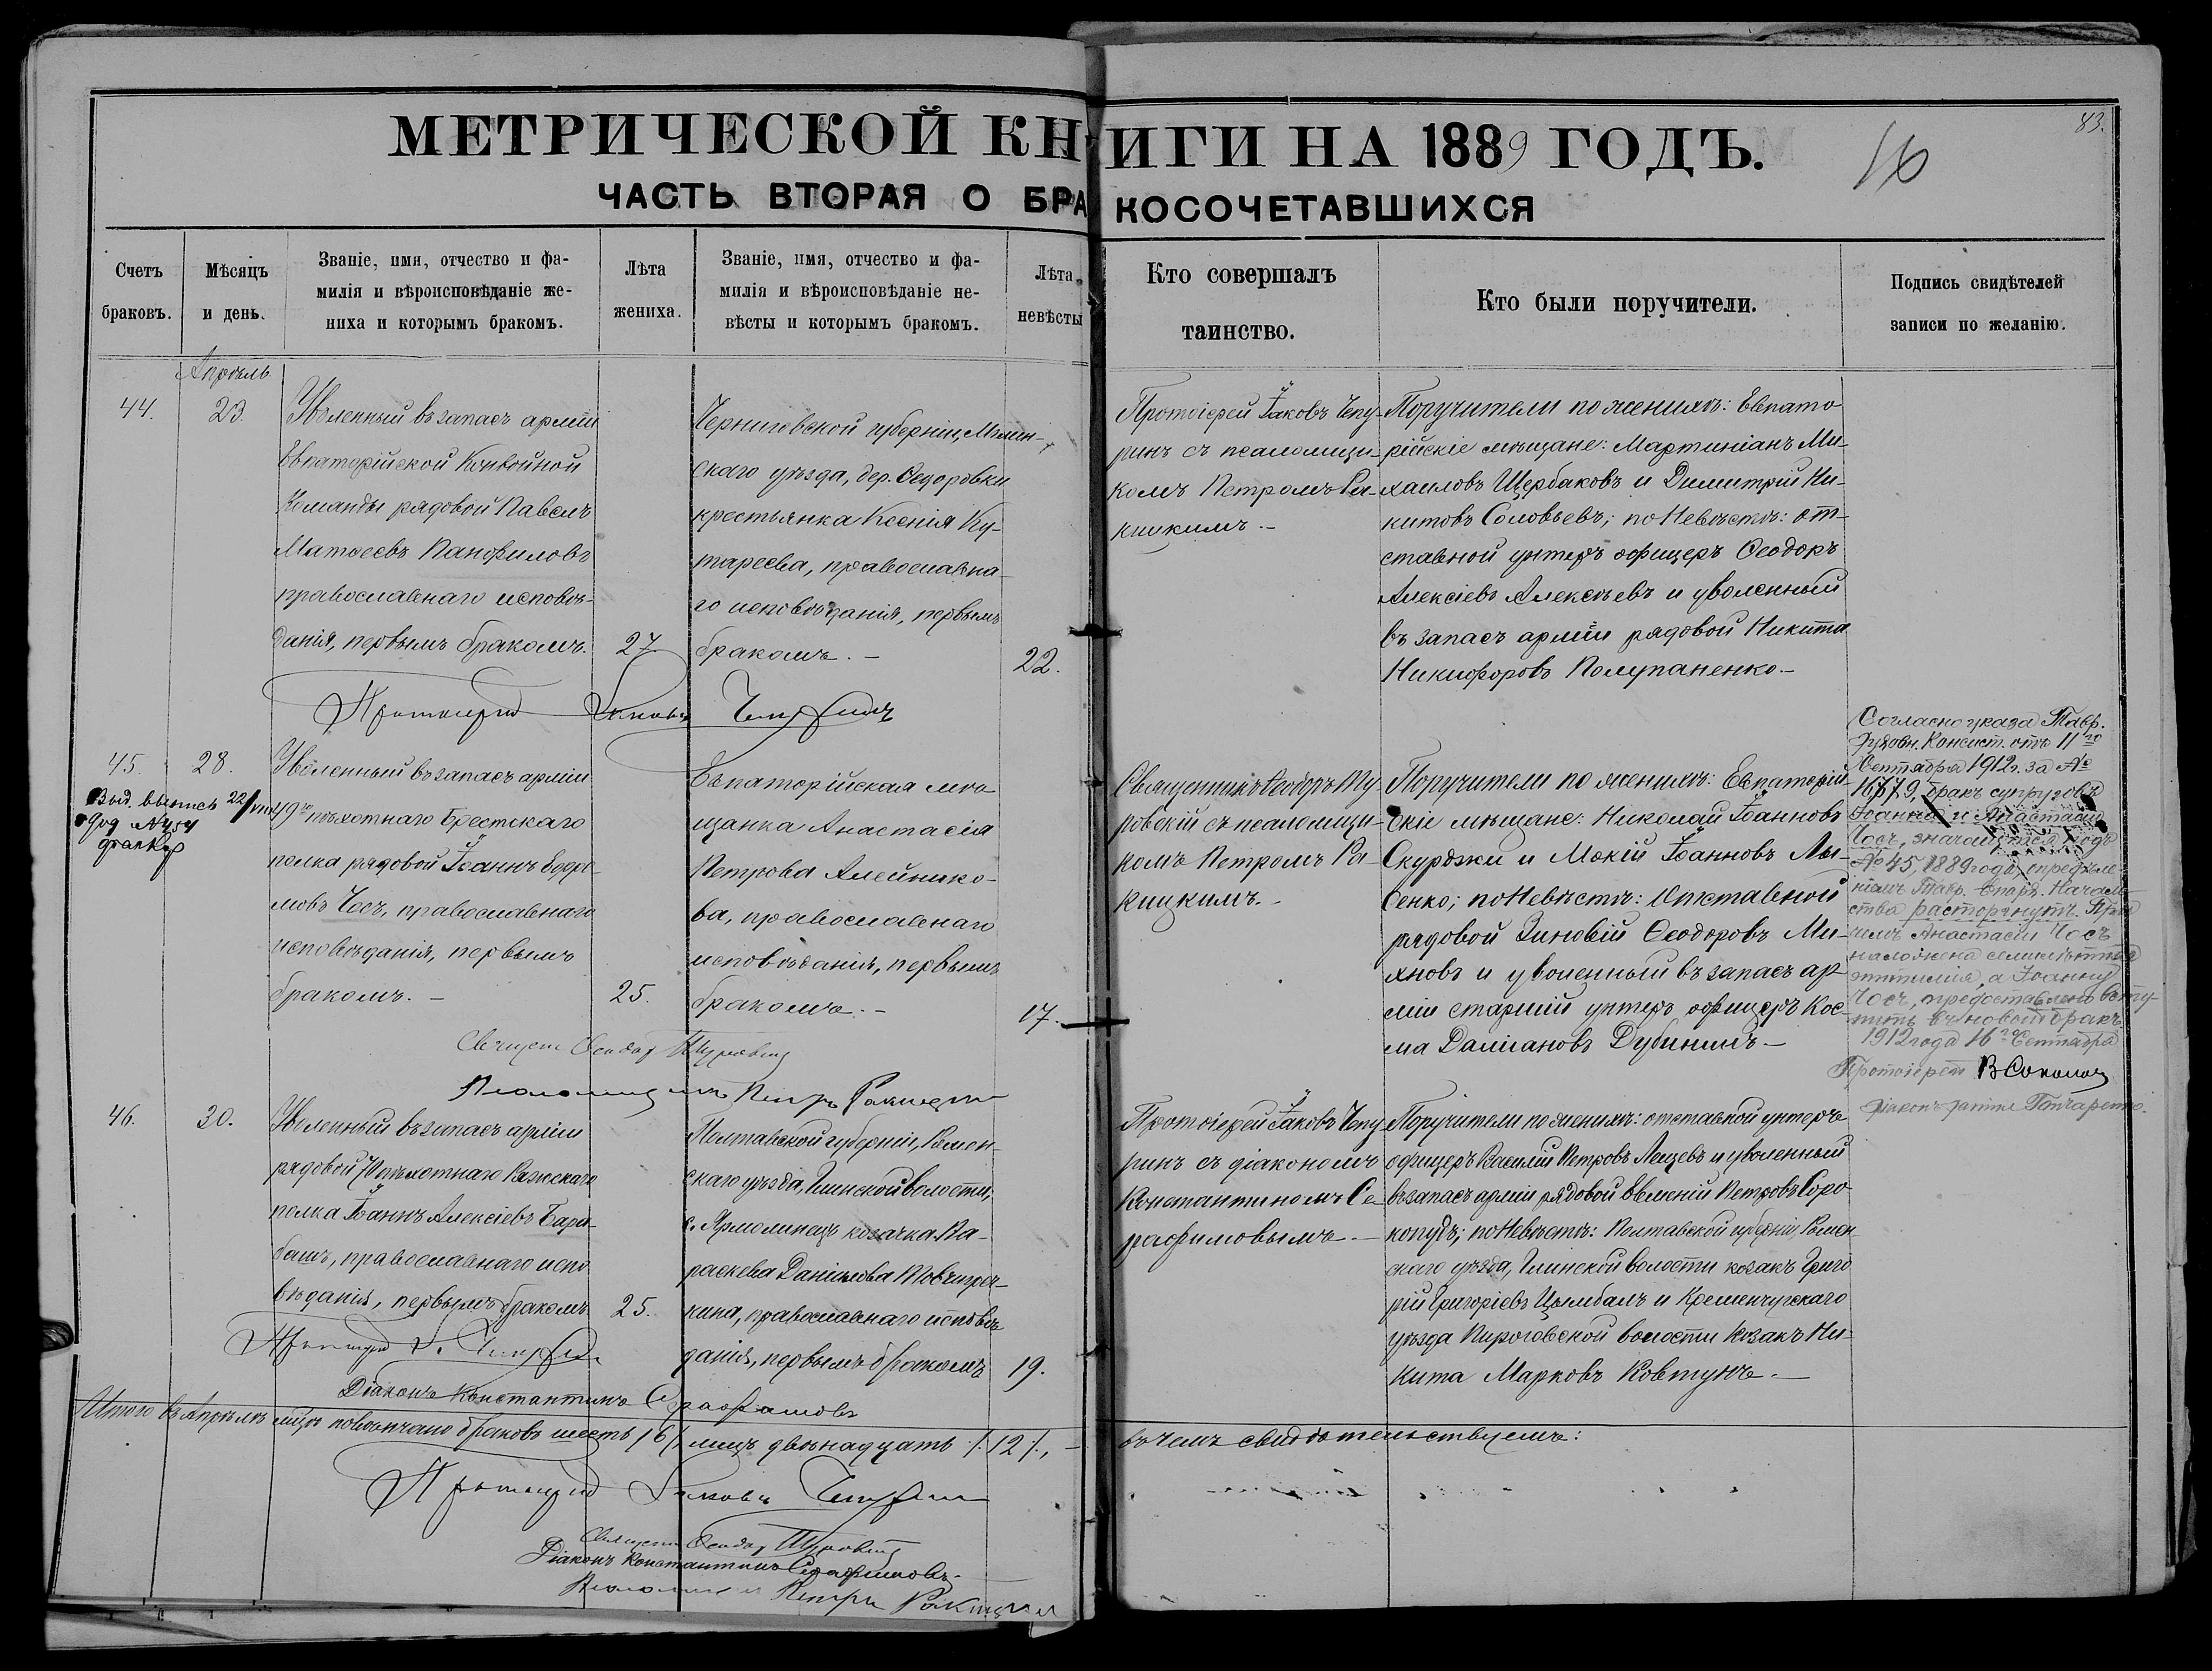 МЕТРИЧЕСКОЙ КНИГИ НА 1889 ГОДЪ.
83.
16
ЧАСТЬ ВТОРАЯ О БРАКОСОЧЕТАВШИХСЯ
Счетъ
браковъ.
Мѣсяцъ
и день.
Званіе, имя, отчество и фа-
милія и вѣроисповѣданіе же-
ниха и которымъ бракомъ.
Лѣта
жениха.
Званіе, имя, отчество и фа-
милія и вѣроисповѣданіе не-
вѣсты и которымъ бракомъ.
Лѣта
невѣсты
Кто совершалъ
таинство.
Кто были поручители.
Подпись свидѣтелей
записи по желанію.
Апрѣль
44.
23.
Уволенный въ запасъ арміи
Евпаторійской Конвойной
Команды рядовой Павелъ
Матѳеевъ Панфиловъ
православнаго исповѣ-
данія, первымъ бракомъ.
27
Черниговской губерніи, Мглин-
скаго уѣзда, дер. Ѳедоровки
крестьянка Ксенія Ку-
тареева, православна-
го исповѣданія, первымъ
бракомъ. –
22.
Протоіерей Іаковъ Чепу-
ринъ съ псаломщи-
комъ Петромъ Ра-
кицкимъ. –
Поручители по женихѣ: Евпато
рійскіе мѣщане: Мартиніанъ Ми-
хаиловъ Щербаковъ и Димитрій Ни-
китовъ Соловьевъ; по Невѣстѣ: от-
ставной унтеръ офицеръ Ѳеодоръ
Алексіевъ Алексѣевъ и уволенный
въ запасъ арміи рядовой Никита
Никифоровъ Полупаненко. –
Протоіерей Іаковъ Чепуринъ
45.
28.
Выд. выпись
Уволенный въ запасъ арміи
49го пѣхотнаго Брестскаго
полка рядовой Іоаннъ
Чосъ, православнаго
исповѣданія, первымъ
бракомъ. –
25.
Евпаторійская мѣ
щанка Анастасія
Петрова Алейнико-
ва, православнаго
исповѣданія, первымъ
бракомъ. –
17.
Священникъ Ѳеодоръ Ту-
ровскій съ псаломщи-
комъ Петромъ Ра-
кицкимъ. –
Поручители по женихѣ: Евпаторій-
скіе мѣщане: Николай Іоанновъ
Скурджи и Мокій Іоанновъ Лы-
сенко; по Невѣстѣ: Отставной
рядовой Зиновій Ѳеодоровъ Ми-
хновъ и уволенный въ запасъ ар
міи старшій унтеръ офицеръ Кос-
ма Даміановъ Дубининъ –
Согласно указа Тавр.
Духовн. Консист. отъ 11го
Сентября 1912 г. за №
16779, бракъ супруговъ
Іоанна и Анастасіи
Чосъ, значащійся подъ
№ 45, 1889 года, опредѣле-
ніемъ Тавр. Епарх. Началь-
ства расторгнутъ. При
чемъ Анастасіи Чосъ
наложена семилѣтняя
эпитимія, а Іоанну
Чосъ, предоставлено всту-
пить въ новый бракъ.
1912 года 16го Сентября
Протоіерей В Соколов
Священ. Ѳеодоръ Туровскій
Псаломщикъ Петръ Ракицкій
46.
30.
Уволенный въ запасъ арміи
рядовой 70 пѣхотнаго Ряжскаго
полка Іоаннъ Алексіевъ Бара-
башъ, православнаго испо
вѣданія, первымъ бракомъ
25.
Полтавской губерніи, Ромен-
скаго уѣзда, Глинской волости,
с. Ярмолинецъ козачка Па-
раскева Даніилова Товчигреч-
кина, православнаго исповѣ
данія, первымъ бракомъ
19.
Протоіерей Іаковъ Чепу
ринъ съ діакономъ
Константиномъ Се
рафимовымъ –
Поручители по женихѣ: отставной унтеръ
офицеръ Василій Петровъ Лещевъ и уволенный
въ запасъ арміи рядовой Евменій Петровъ Соро
копудъ; по Невѣстѣ: Полтавской губерніи, Ромен
скаго уѣзда, Глинской волости козакъ Григо
рій Григоріевъ Цымбалъ и Кременчугскаго
уѣзда Пироговской волости козакъ Ни-
кита Марковъ Ковтунъ. –
Протоіерей І. Чепуринъ
Діаконъ Константинъ Серафимовъ
Итого въ Апрѣлѣ мѣцѣ повѣнчано браковъ шесть /6/ лицъ двѣнадцать /:12:/, –
въ чемъ свидѣтельствуемъ:
Протоіерей Іаковъ Чепуринъ
Священ. Ѳеодоръ Туровскій
Діаконъ Константинъ Серафимовъ.
Псаломщикъ Петръ Ракицкій